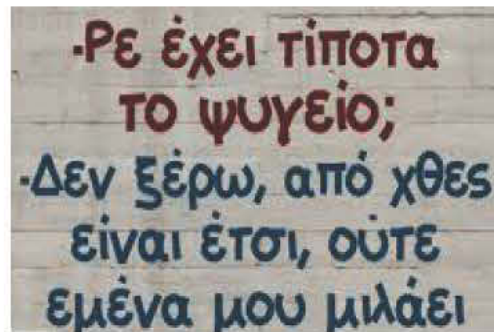 -Ρε έχει τίποτα
το ψυγείο;
-Δεν ξέρω, από χθες
είναι έτσι, ούτε
εμένα μου μιλάει